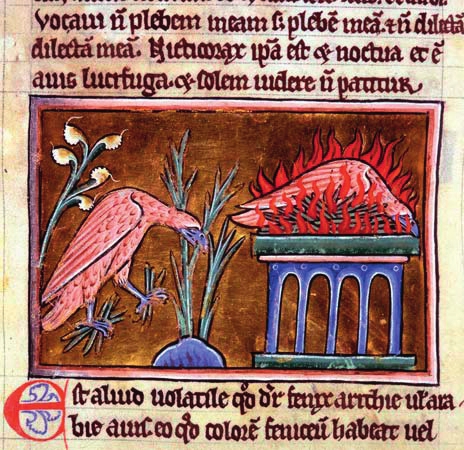 Vocaui n̄ plebem meam s; plebē meā. ⁊ n̄ dilectā
dilectā meā. Nicticorax ip̄a est q̄ noctua et ē
auis lucifuga. ⁊ solem uidere n̄ patitur
Est aliud uolatile qd̄ dr̄ ul̄ ara
bie auis eo qd̄ colorē feniceū habeat uel